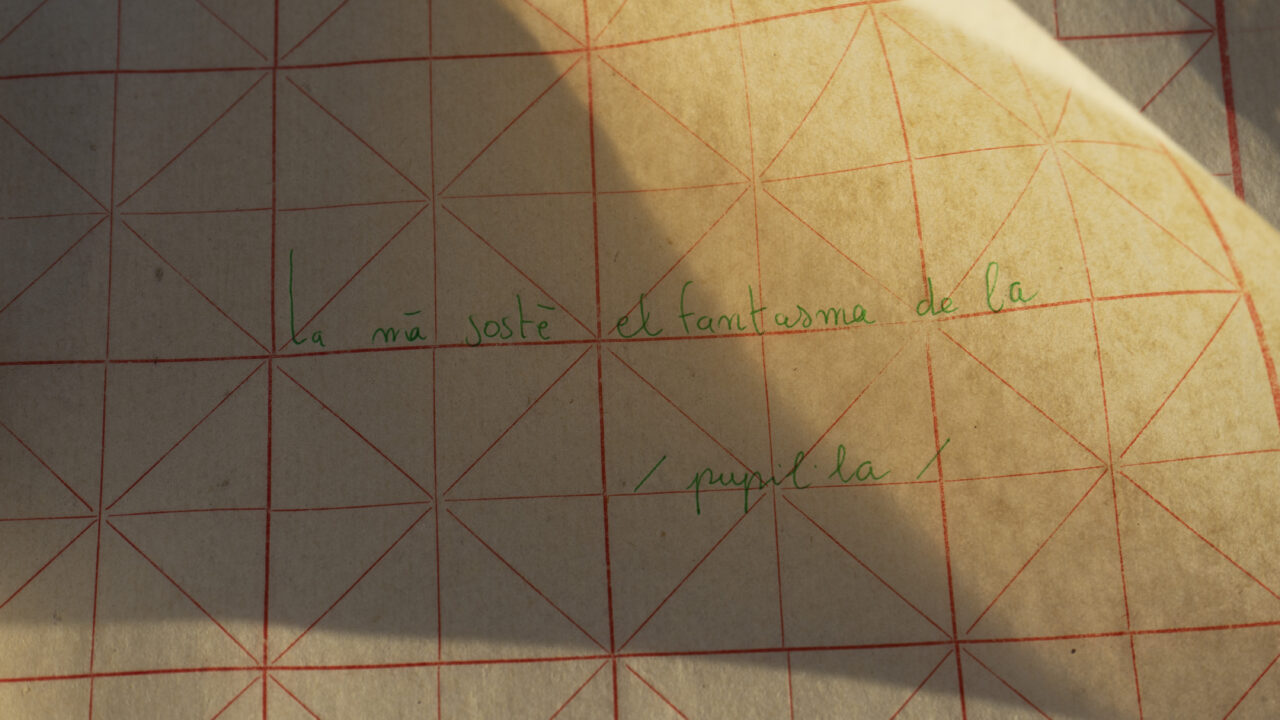 La mā sostē el fantasma de la
/ pupil·la /